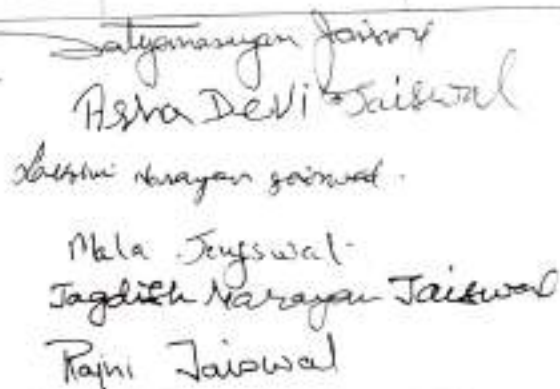 Satyanarayan Jaiswal
Asha Devi Jaiswal
Lakshmi Narayan Jaiswal.
Mala Jayswal
Jagdish Narayan Jaiswal
Rajni Jaiswal